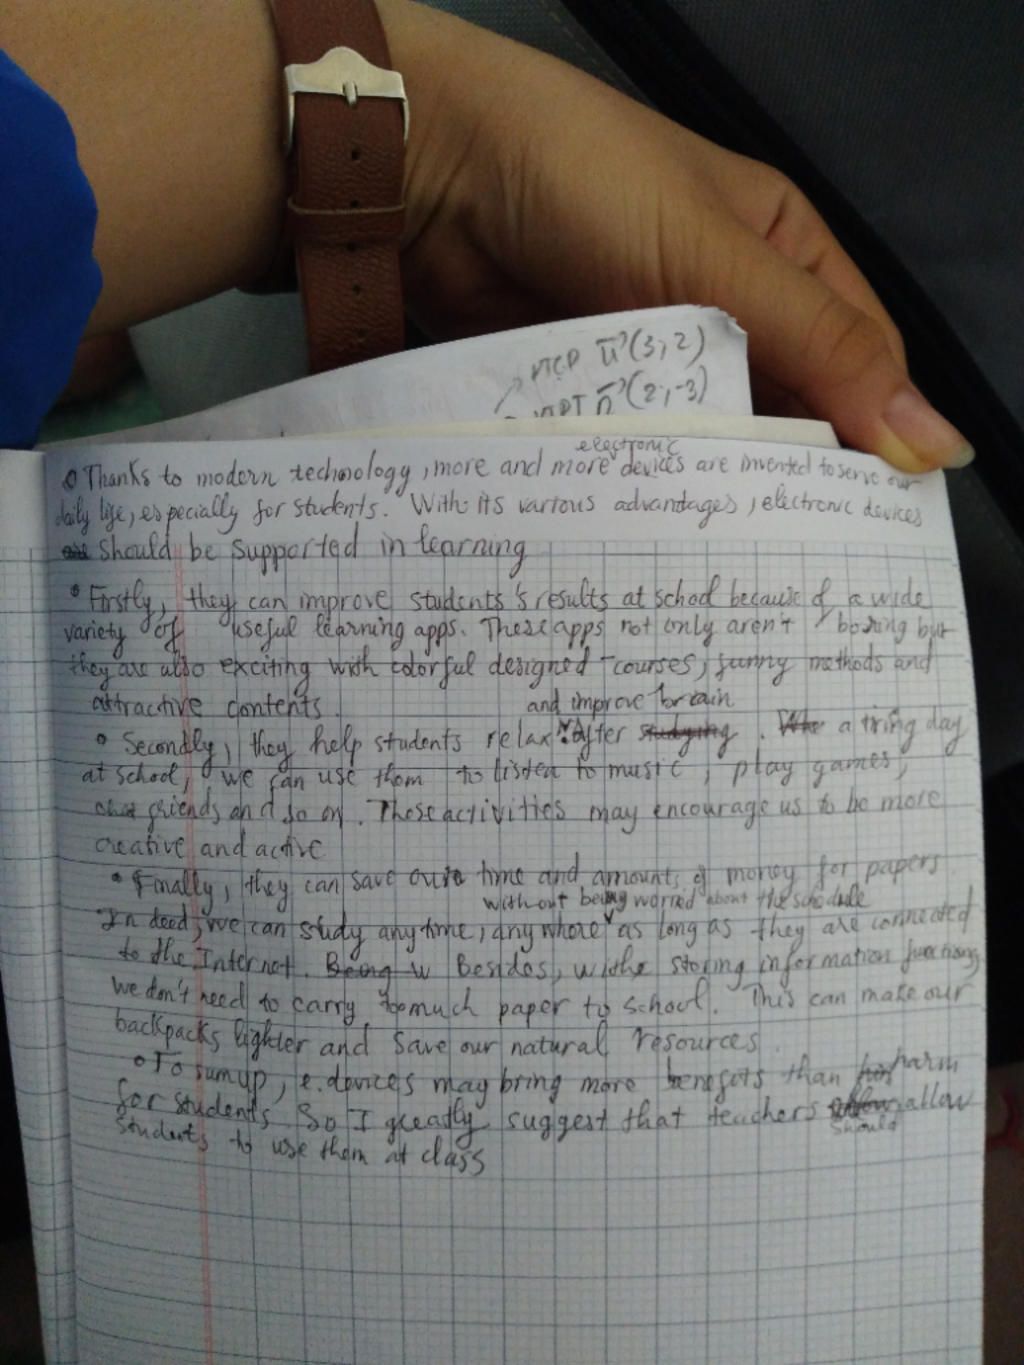 VTCP u(3;2)
VTPT n(2;-3)
electronic
Thanks to modern technology, more and more devices are invented to serve our
daily life, especially for students. With its various advantages, electronic devices
should be supported in learning
Firstly, they can improve students's results at school because of a wide
variety of useful learning apps. These apps not only aren't boring but
they are also exciting with colorful designed courses, funny methods and
attractive contents.
and improve brain
Secondly, they help students relax. After studying. a tiring day
at school, we can use them to listen to music, play games,
chat friends and so on. These activities may encourage us to be more
creative and active
Finally, they can save our time and amounts of money for papers
without being worried about the schedule
In deed, we can study anytime, anywhere as long as they are connected
to the Internet. Being w Besides, withe storing information functions,
we don't need to carry too much paper to school. This can make our
backpacks lighter and save our natural resources.
To sum up, e.devices may bring more benefits than harm
for students. So I greatly suggest that teachers allow
should
students to use them at class